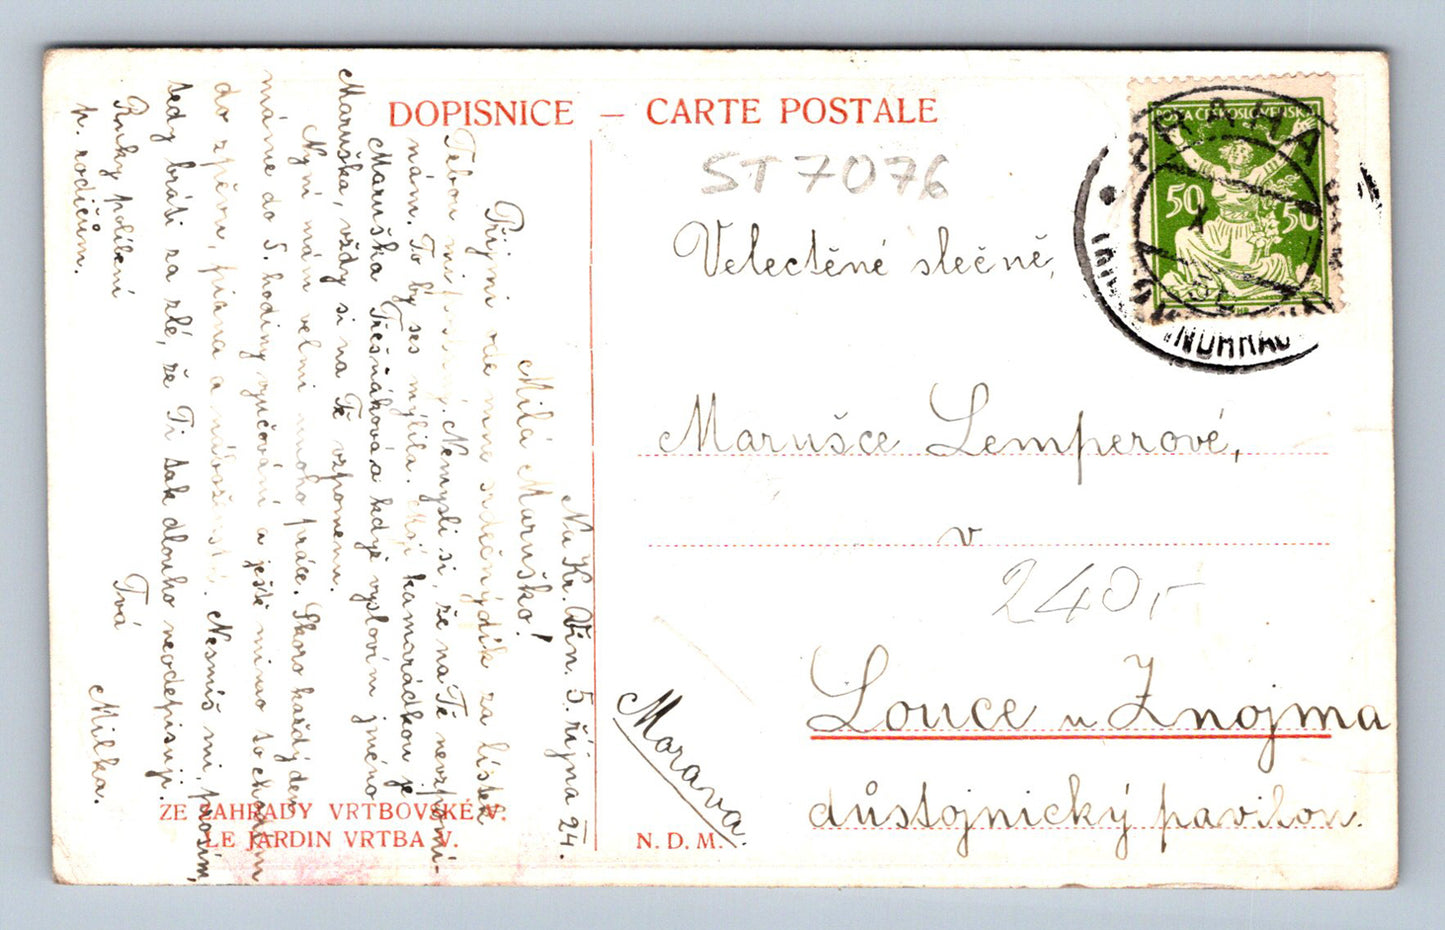 DOPISNICE – CARTE POSTALE
ST7076
POŠTA ČESKOSLOVENSKÁ
50 50
PRAHA
Velectěné slečně,
Marušce Lemperové,
v
240,-
Louce u Znojma
důstojnický pavilon.
Morava.
N. D. M.
ZE ZAHRADY VRTBOVSKÉ V.
LE JARDIN VRTBA V.
Na Kr. Vin. 5. října 24.
Milá Maruško!
Přijmi ode mne srdečný dík za lístek
Tebou mi. Nemysli si, že na Tě nevzpomí-
nám. To by ses mýlila. Mojí kamarádkou je
Maruška Třešňáková a když vyslovím jméno
Maruška, vždy si na Tě vzpomenu.
Nyní mám velmi mnoho práce. Skoro každý den
máme do 5. hodiny vyučování a ještě mimo to chodím
do zpěvu, piana a náboženství. Nesmíš mi, prosím,
tedy bráti za zlé, že Ti tak dlouho neodepisuji.
Ruky políbení Tvá
p. rodičům. Milka.